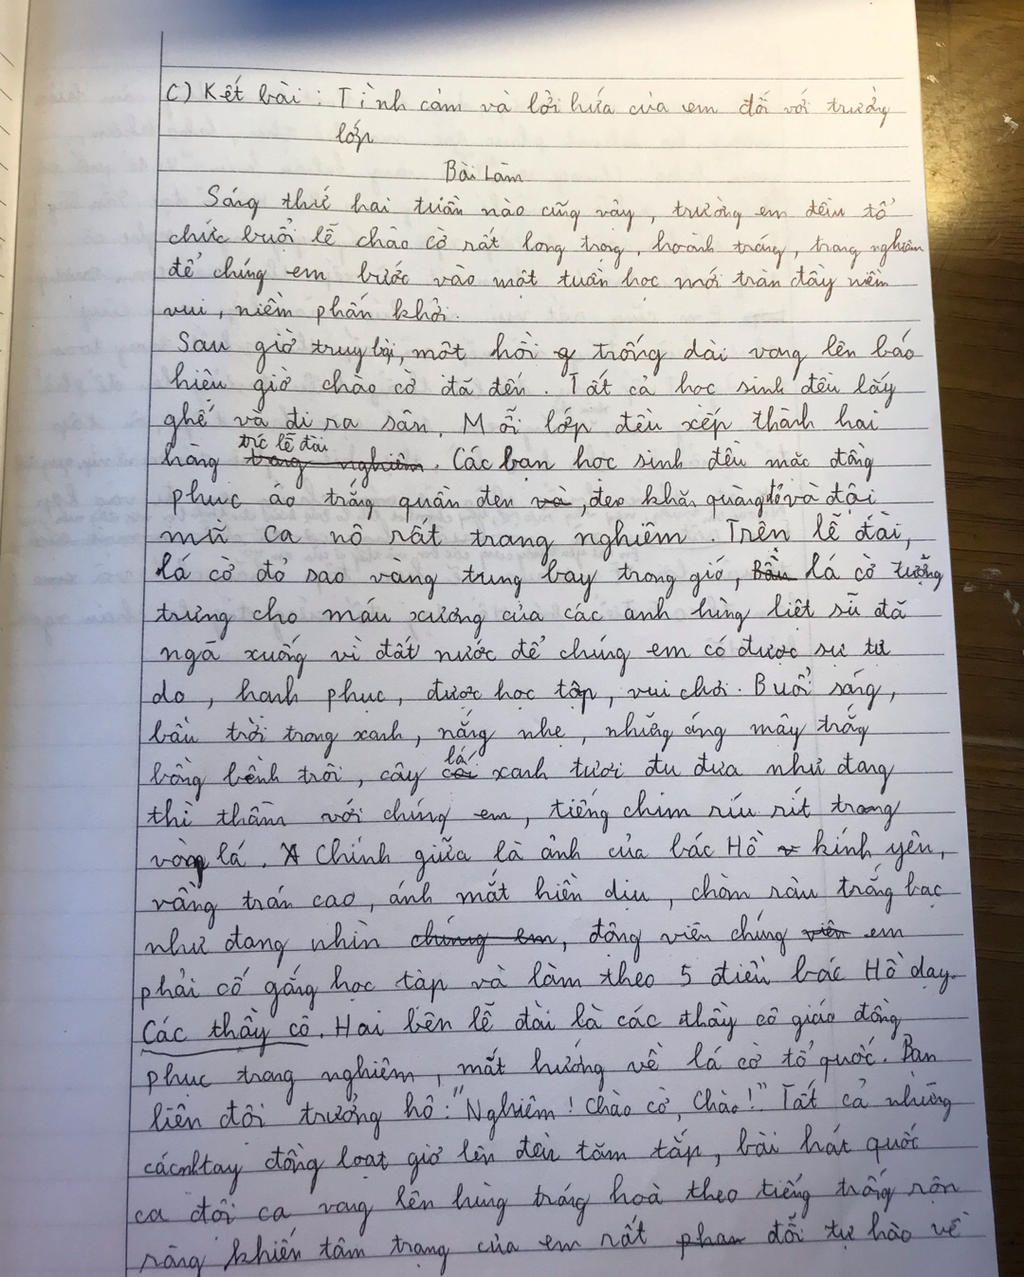 C) Kết bài : Tình cảm và lời hứa của em đối với trường
lớp
Bài Làm
Sáng thứ hai tuần nào cũng vậy, trường em đều tổ
chức buổi lễ chào cờ rất long trọng, hoành tráng, trang nghiêm
để chúng em bước vào một tuần học mới tràn đầy niềm
vui, niềm phấn khởi.
Sau giờ truy bài, một hồi trống dài vang lên báo
hiệu giờ chào cờ đã đến. Tất cả học sinh đều lấy
ghế và đi ra sân. Mỗi lớp đều xếp thành hai
trc lễ đài
hàng trang nghiêm. Các bạn học sinh đều mặc đồng
phục áo trắng quần đen và, đeo khăn quàng đỏ và đội
mũ ca nô rất trang nghiêm. Trên lễ đài,
lá cờ đỏ sao vàng tung bay trong gió, Bầu lá cờ tượng
trưng cho máu xương của các anh hùng liệt sũ đã
ngã xuống vì đất nước để chúng em có được sự tự
do, hạnh phục, được học tập, vui chơi. Buổi sáng,
bầu trời trong xanh, nắng nhẹ, những áng mây trắng
lá
bồng bềnh trôi, cây cối xanh tươi đu đưa như đang
thì thầm với chúng em, tiếng chim ríu rít trong
vòm lá. Chính giữa là ảnh của bác Hồ kính yêu,
vầng trán cao, ánh mắt hiền dịu, chòm râu trắng bạc
như đang nhìn chúng em, động viên chúng viên em
phải cố gắng học tập và làm theo 5 điều bác Hồ dạy.
Các thầy cô. Hai bên lễ đài là các thầy cô giáo đồng
phục trang nghiêm, mắt hướng về lá cờ tổ quốc. Bạn
liên đội trưởng hô: "Nghiêm! Chào cờ, Chào!" Tất cả những
cánh tay đồng loạt giơ lên đều tăm tắp, bài hát quốc
ca đội ca vang lên hùng tráng hoà theo tiếng trống rộn
ràng khiến tâm trạng của em rất phan đỗi tự hào về